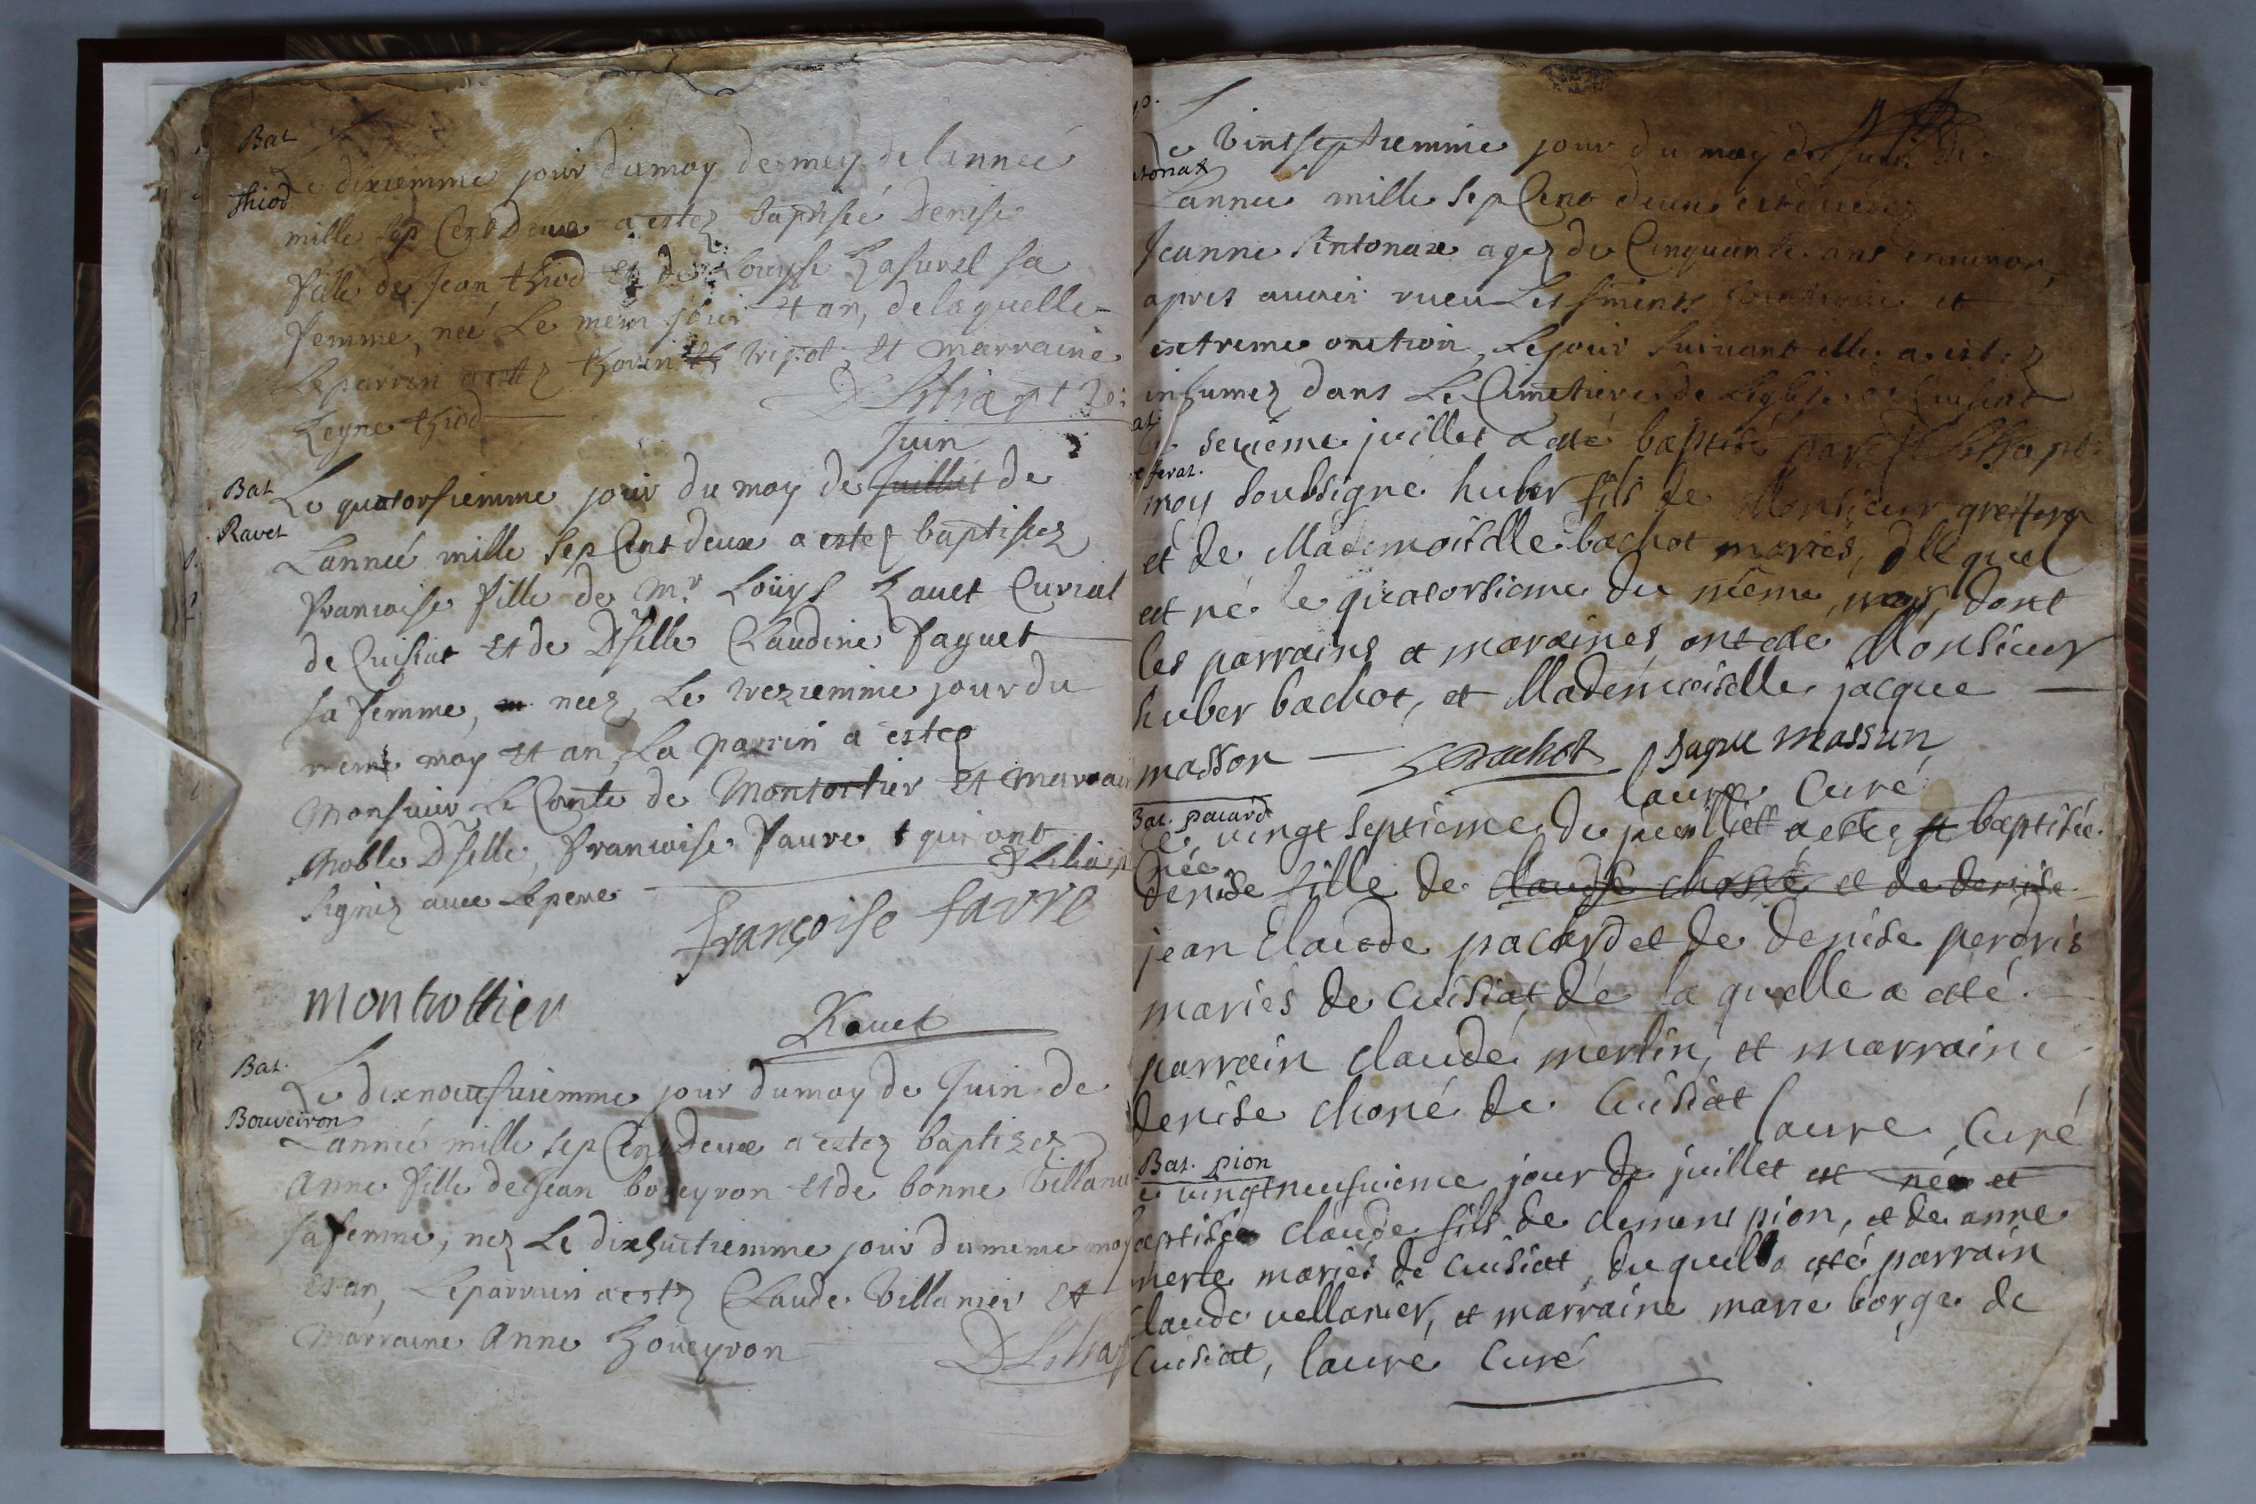 Bat
Thiod
Le dixiemme jour du moy de mey de lanneé
mille sep Cent Deux a estez baptiseé Denise
fille de Jean thiod et de Louyse
femme, neé Le mem jour et an, de laquelle
Le parrin a estez thovin tripot, et marraine
thiod
Bat
Ravet
Juin
Le quatorsiemme jour du moy de Juillet de
Lanneé mille Sep Cent deux a estez baptisez
francoise fille de Mr Louys Ravet Curial
de Cuisiat et de Dslle Claudine faguet
sa femme, neez, Le treziemme jour du
meme moy et an, La parrin a estez
Monsieur Le Conte de Montortier et marrai
Noble Dselle, francoise faure t qui ont
signez avec Le pere
françoise favre
montrottier
Ravet
Bat.
Bouveiron
Le dixneufuiemme jour du moy de Juin de
Lanneé mille sep Cent Deux a estez baptisez
Anne fille de Jean boveyron et de bonne Villani
sa femme, nez Le dixhuitiemme jour du meme moy
et an, Le parrain a estez Claude Villanier et
Marraine Anne boveyron
Le Vintseptiemme jour du moy de
Lannee mille sep Cent deux
Jeanne Antonax agez de Cinquante ans environ,
apres avoir
extreme onction, Le jour suivant elle a estez
inhumez dans Le Cimetiere de Leglise de Cuisiat
seizieme juillet a esté baptisé par
moy soubsigne huber fils de Monsieur greffera
et de Mademoiselle bachot maries, le quel
est né le quatorsieme du méme moy, dont
les parrains et maraines ont esté Monsieur
huber bachot, et Mademoiselle jacque
masson
bachot Jaque massun
laure Curé
Bat. pacard
le vingt septieme de juillet a este et baptisée
née
denise fille de claude choné et de denise
jean claude pacard et de denise perdris
mariés de cuisiat, de la quelle a esté
parrain claude merlin, et marraine
denise choné de Cuisiat
laure Curé
Bat. pion
le vingtneufuieme jour de juillet est née et
baptisée claude fils de clemens pion, et de anne
merle mariés de cuisiat, du quel a esté parrain
claude vellanier, et marraine marie borge de
Cuisiat, laure Curé